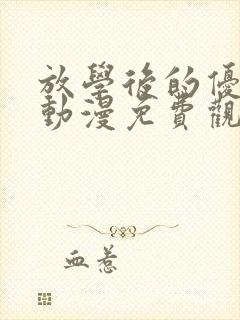 放學後的優
動漫免費觀
血惹